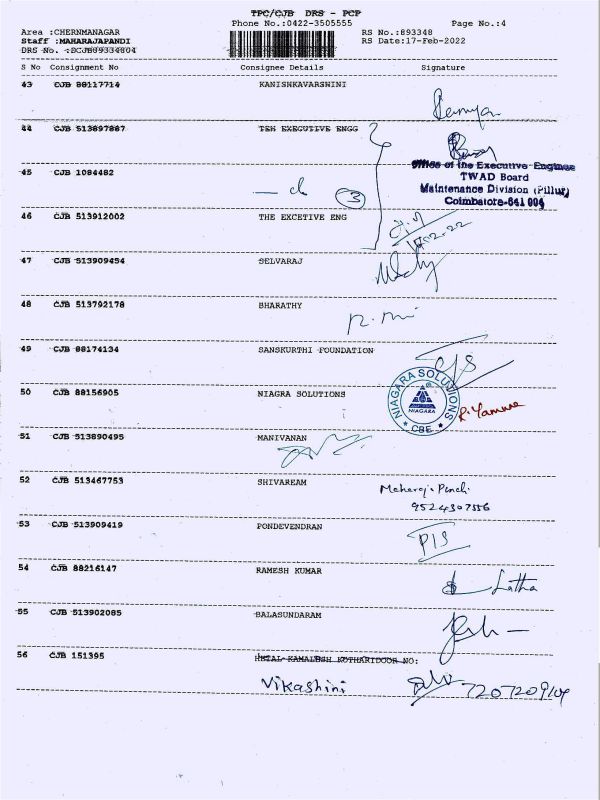 TPC/CJB DRS - PCP
Phone No.:0422-3505555 Page No.:4
Area :CHERNMANAGAR RS No.:893348
Staff :MAHARAJAPANDI RS Date:17-Feb-2022
DRS No. :DCJB89334804
S No Consignment No Consignee Details Signature
43 CJB 88117714 KANISHKAVARSHINI
44 CJB 513897887 TEH EXECUTIVE ENGG
Office of the Executive Engineer
TWAD Board
45 CJB 1084482
Maintenance Division (Pillur)
3
Coimbatore-641 004
46 CJB 513912002 THE EXCETIVE ENG
47 CJB 513909454 SELVARAJ
48 CJB 513792178 BHARATHY
49 CJB 88174134 SANSKURTHI FOUNDATION
50 CJB 88156905 NIAGRA SOLUTIONS
NIAGARA SOLUTIONS
NIAGARA
* CBE *
R. Yamuna
51 CJB 513890495 MANIVANAN
52 CJB 513467753 SHIVAREAM
9524307556
53 CJB 513909419 PONDEVENDRAN
54 CJB 88216147 RAMESH KUMAR
Latha
55 CJB 513902085 BALASUNDARAM
56 CJB 151395 HETAL KAMALESH KOTHARIDOOR NO:
Vikashini